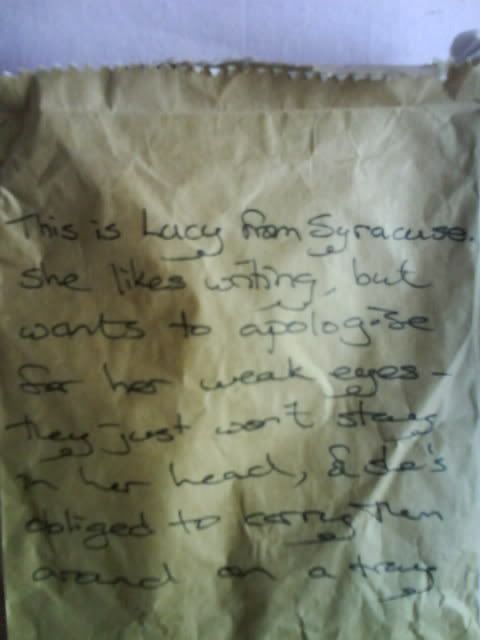 This is Lucy from Syracuse.
She likes writing, but
wants to apologise
for her weak eyes -
they just won't stay
in her head, & she's
obliged to carry them
around on a tray